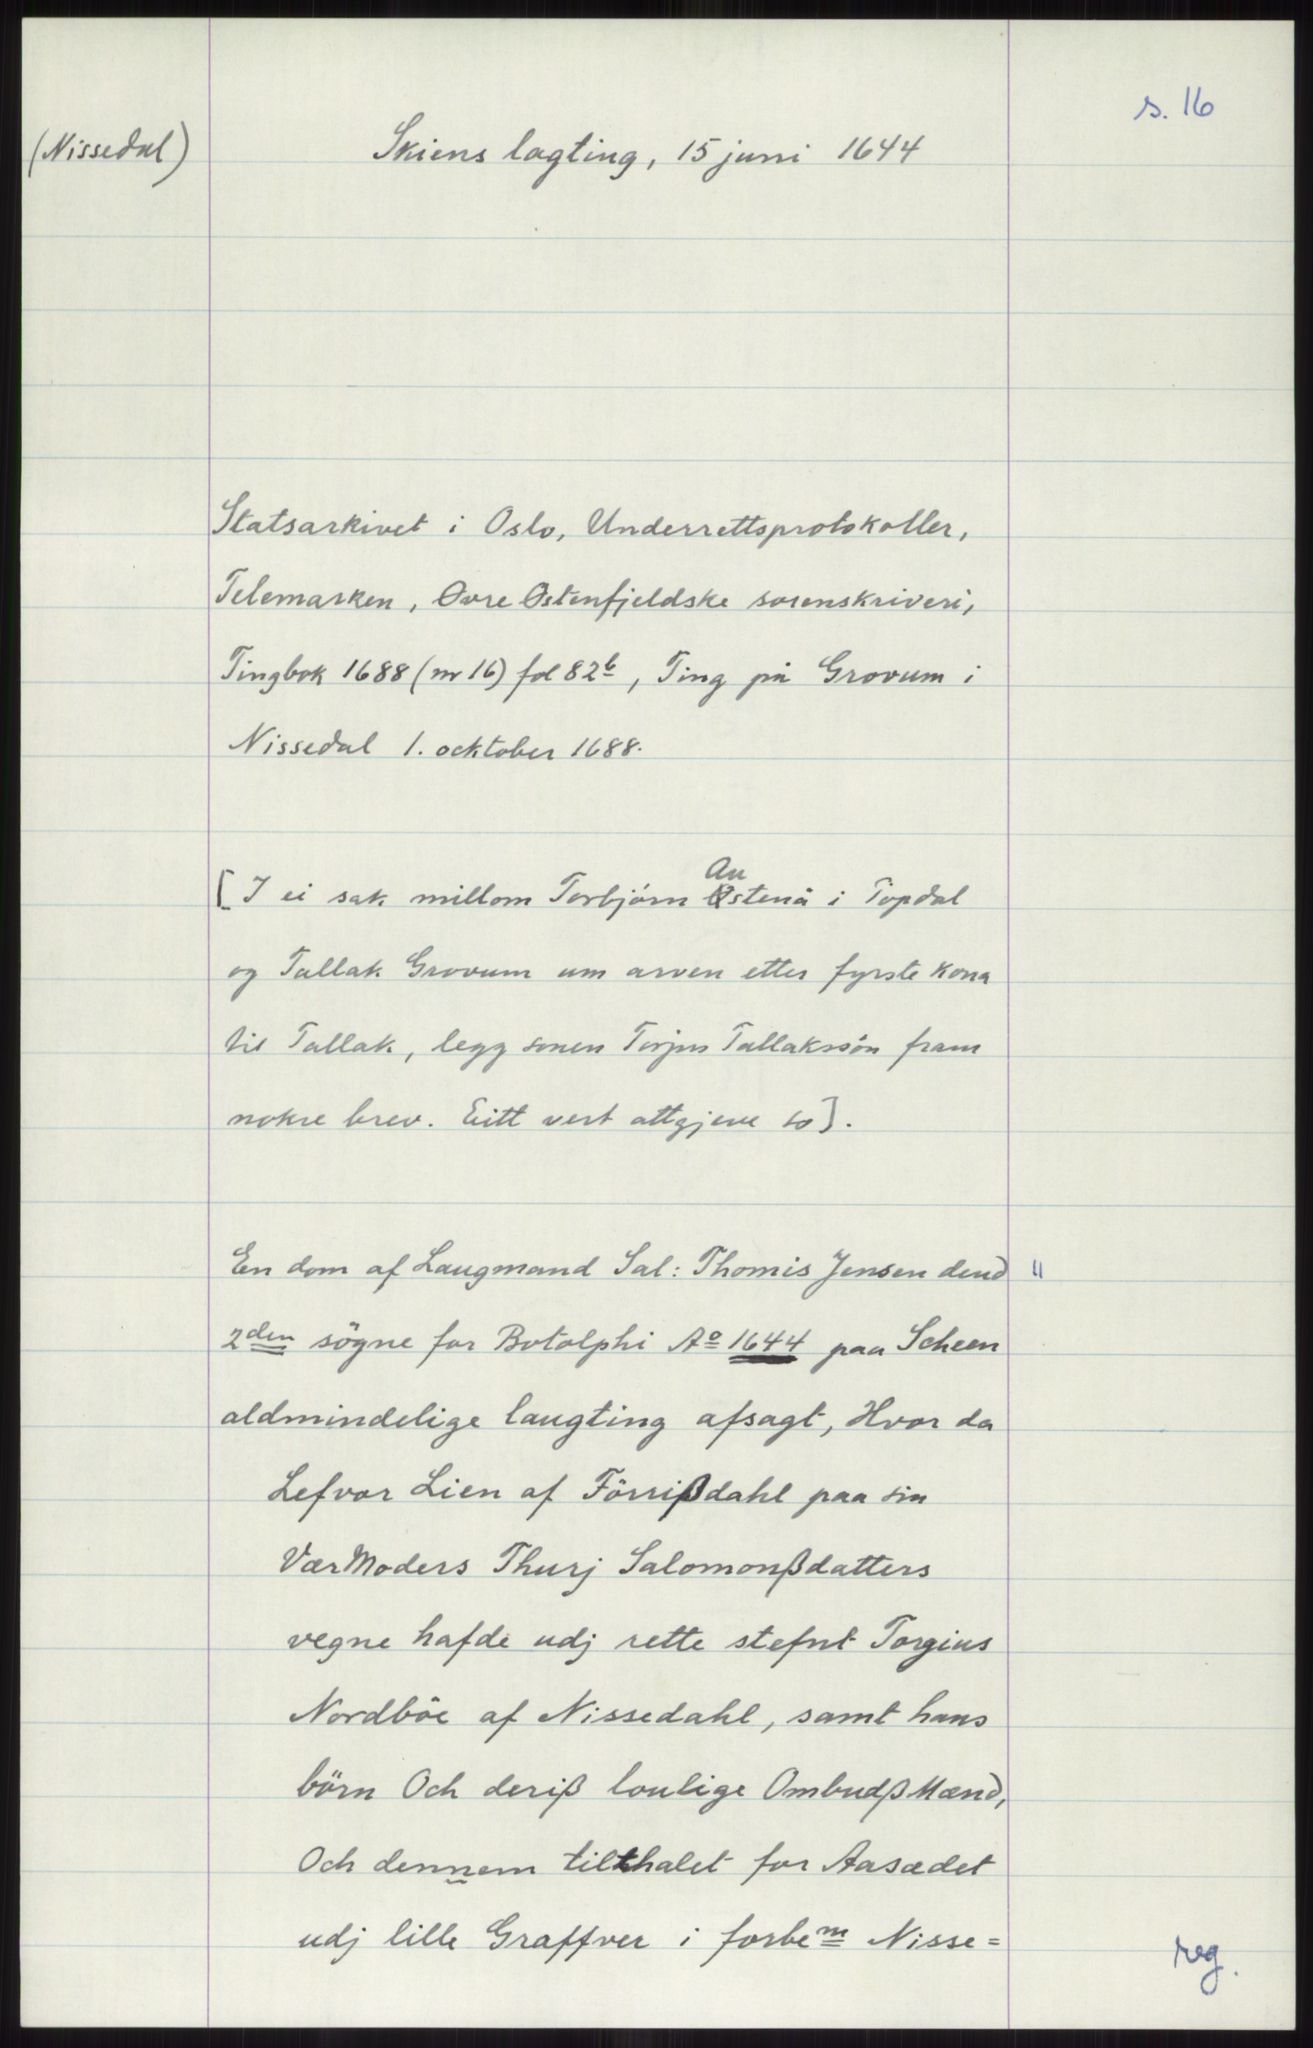 s. 16
(Nissedal) Skiens lagting, 15 juni 1644
Statsarkivet i Oslo, Underrettsprotokoller,
Telemarken, Øvre Østenfjeldske sorenskriveri,
Tingbok 1688 (nr 16) fol 82b, Ting på Grovum i
Nissedal 1. ocktober 1688.
Au
[I ei sak millom Torbjörn Østenå i Topdal
og Tallak Grovum um arven etter fyrste kona
til Tallak, legg sonen Torjus Tallaksson fram
nokre brev. Eitt vert attgjeve so].
En dom af Laugmand Sal: Thomis Jensen dend "
2den sögne for Botolphi Ao 1644 paa Scheen
aldmindelige laugting afsagt, Hvor da
Lefvor Lien af Förrißdahl paa sin
VærModers Thurj Salomonßdatters
vegne hafde udj rette stefnt Torgius
Nordböe af Nissedahl, samt hans
börn Och deriß loulige OmbudßMænd,
Och dennem tilthalet for Aasædet
udj lille Graffver i forbem Nisse=
reg.